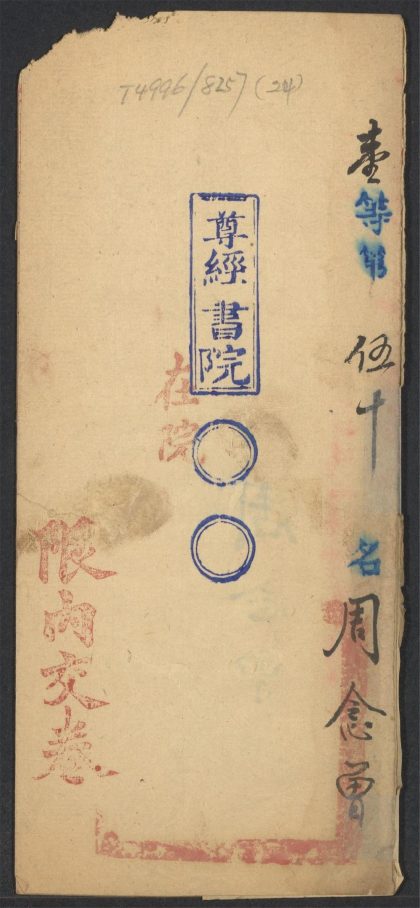 T4996/8257(24)
壹等第伍十名周念曾
尊經書院
在院
限内交卷